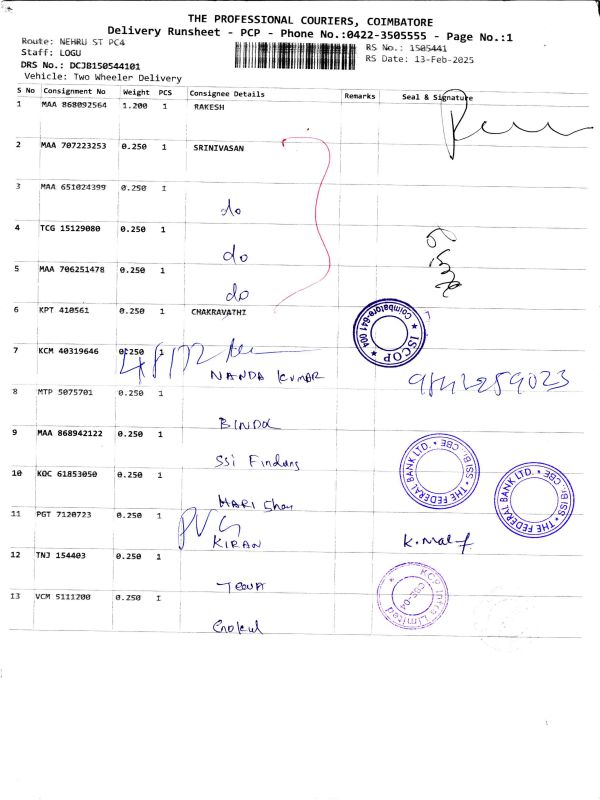 THE PROFESSIONAL COURIERS, COIMBATORE
Delivery Runsheet - PCP - Phone No.:0422-3505555 - Page No.:1
Route: NEHRU ST PC4
RS No.: 1505441
Staff: LOGU
RS Date: 13-Feb-2025
DRS No.: DCJB150544101
Vehicle: Two Wheeler Delivery
S No Consignment No Weight PCS Consignee Details Remarks Seal & Signature
1 MAA 868092564 1.200 1 RAKESH
2 MAA 707223253 0.250 1 SRINIVASAN
3 MAA 651024399 0.250 1
do
4 TCG 15129080 0.250 1
do
5 MAA 706251478 0.250 1
do
6 KPT 410561 0.250 1 CHAKRAVATHI
ISCOP * Coimbatore-641 004 *
7 KCM 40319646 0.250 1
NANDA KUMAR
8 MTP 5075701 0.250 1
9 MAA 868942122 0.250 1
THE FEDERAL BANK LTD. * CBE * SSI BR.
THE FEDERAL BANK LTD. * CBE * SSI BR.
10 KOC 61853050 0.250 1
11 PGT 7120723 0.250 1
KIRAN
12 TNJ 154403 0.250 1
KCP Infra Limited
13 VCM 5111200 0.250 1
Gokul